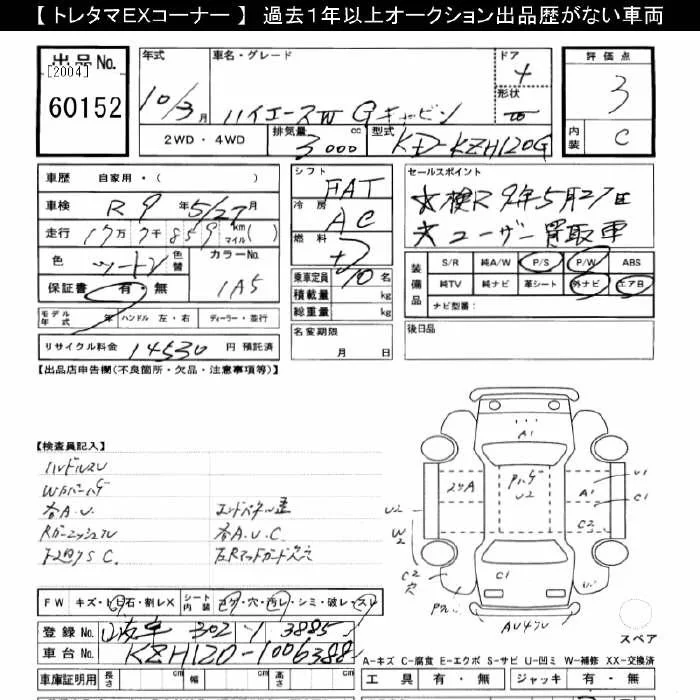 【 トレタマEXコーナー 】 過去1年以上オークション出品歴がない車両
出品No.
[2004]
60152
年式
10/3月
車名・グレード
ハイエースW Gキャビン
ドア
4
形状
評価点
3
内装
C
2WD・4WD
排気量
3000 cc
型式
KD-KZH120G
車歴 自家用・( )
車検 R9年5/27月
走行 17万7千859 km マイル( )
色 ツートン 色替
カラーNo.
1A5
保証書 有・無
モデル年式 年
ハンドル 左・右
ディーラー・並行
リサイクル料金 14530 円 預託済
シフト
FAT
冷房
AC
燃料
乗車定員 10 名
積載量 kg
総重量 kg
名変期限
月 日
セールスポイント
☆検R9年5月27日
☆ユーザー買取車
装備品
S/R 純A/W P/S P/W ABS
純TV 純ナビ 革シート 外ナビ エアB
ナビ型番:
後日品
【出品店申告欄(不良箇所・欠品・注意事項等)】
【検査員記入】
ハンドルスレ
各A.U.
下廻りSC.
各A.U.C
左Rマッドガード欠
A1
U1
A1
C1
U2
W2
C2
C2
穴
C1
スペア
FW キズ・トビ石・割レX
シート内装 コゲ・穴・汚レ・シミ・破レ・スレ
登録No. 302 ソ 3885
車台No. KZH120-1006388
車庫証明用 長さ cm 幅 cm 高さ cm
A-キズ C-腐食 E-エクボ S-サビ U-凹ミ W-補修 XX-交換済
工具 有・無 ジャッキ 有・無